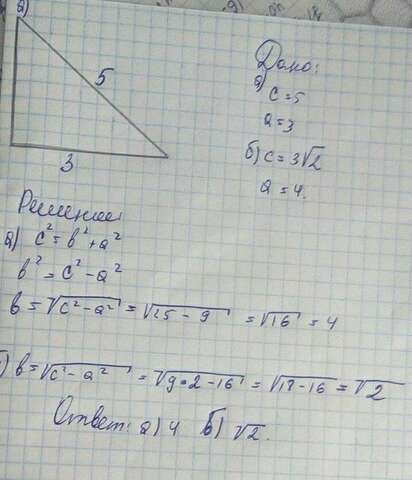 а)
5
3
Дано:
а)
c = 5
a = 3
б) c = 3√2
a = 4.
Решение:
а) c² = b² + a²
b² = c² - a²
b = √c² - a² = √25 - 9 = √16 = 4
) b = √c² - a² = √9·2 - 16 = √18 - 16 = √2
Ответ: а) 4 б) √2.